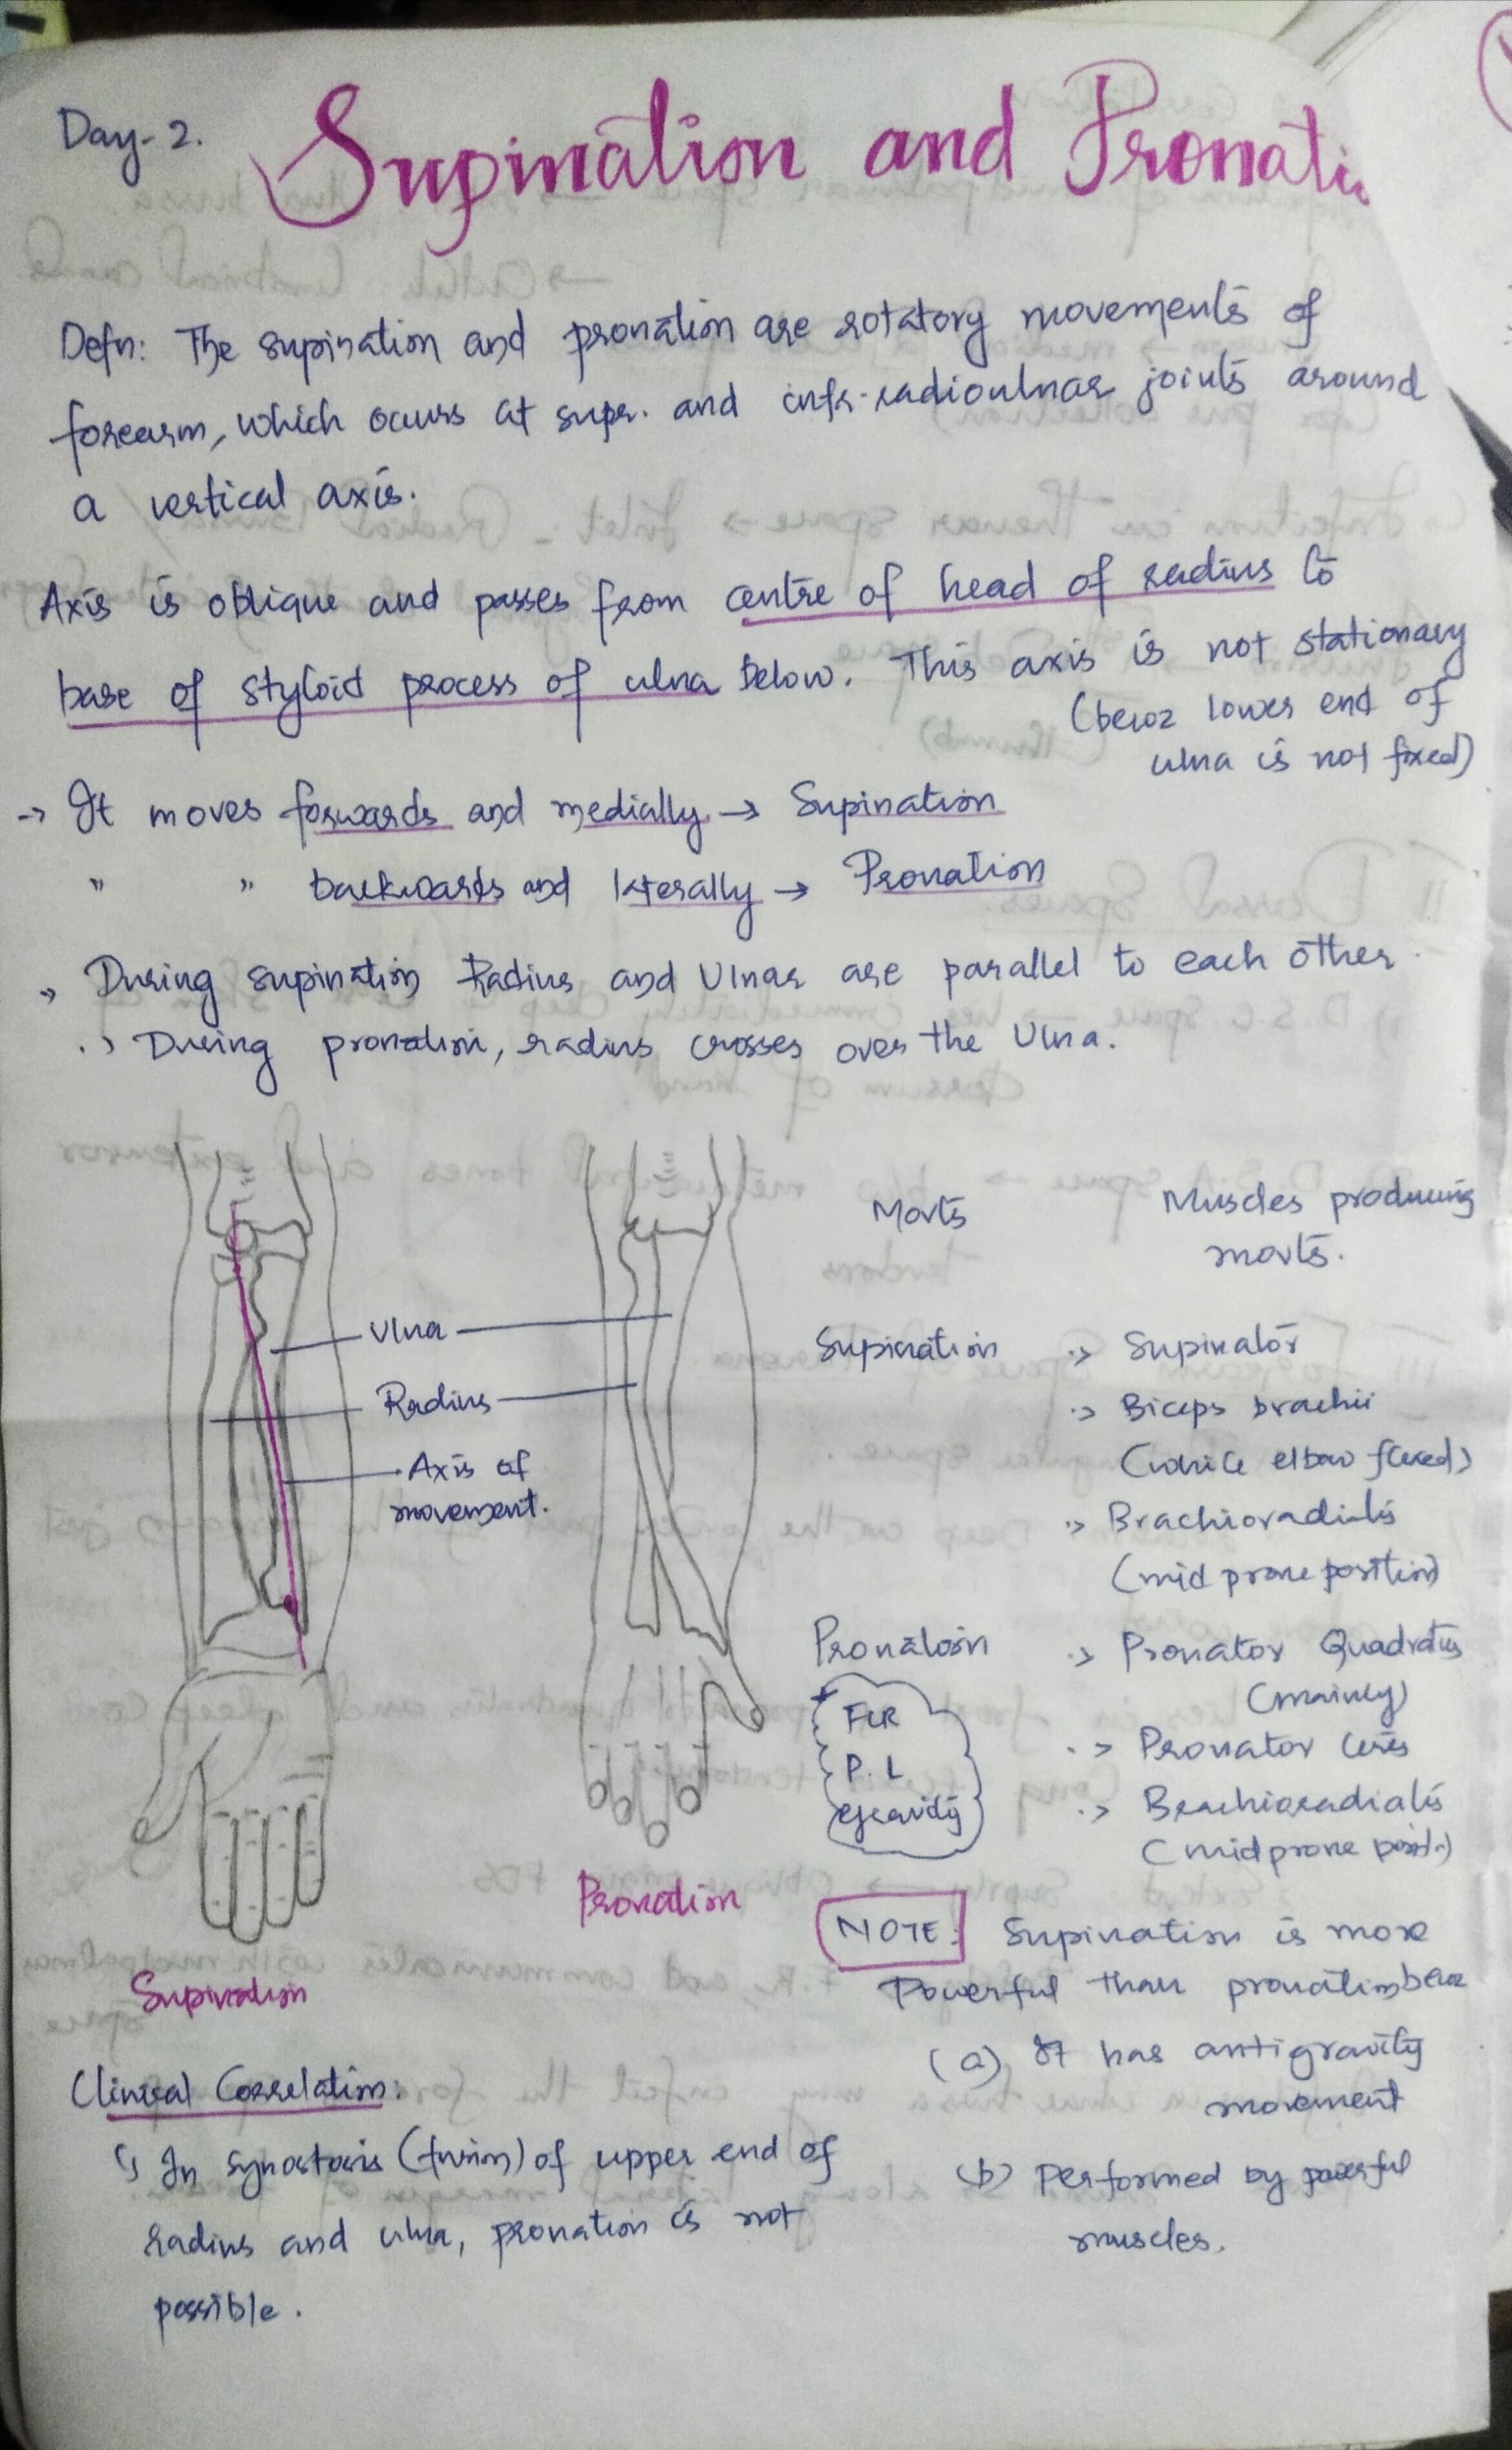 Day-2.
Supination and Pronati
Defn: The supination and pronation are rotatory movements of
forearm, which occurs at super. and infr-radioulnar joints around
a vertical axis.
Axis is oblique and passes from centre of head of radius to
base of styloid process of ulna below. This axis is not stationary
(becoz lower end of
ulna is not fixed)
-> It moves forwards and medially -> Supination
" " backwards and laterally -> Pronation
During supination Radius and Ulnar are parallel to each other.
During pronation, radius crosses over the Ulna.
Ulna
Radius
Axis of
movement.
Supination
Pronation
Movts
Muscles producing
movts.
Supination
Supinator
Biceps brachii
(while elbow flexed)
Brachioradialis
(mid prone position)
Pronatoin
Pronator Quadratus
(mainly)
Pronator teres
Brachioradialis
(midprone posit.)
FCR
P.L
gravity
NOTE: Supination is more
Powerful than pronation becoz
(a) It has antigravity
movement
(b) Performed by powerful
muscles.
Clinical Correlation:
In synostosis (fusion) of upper end of
radius and ulna, pronation is not
possible.